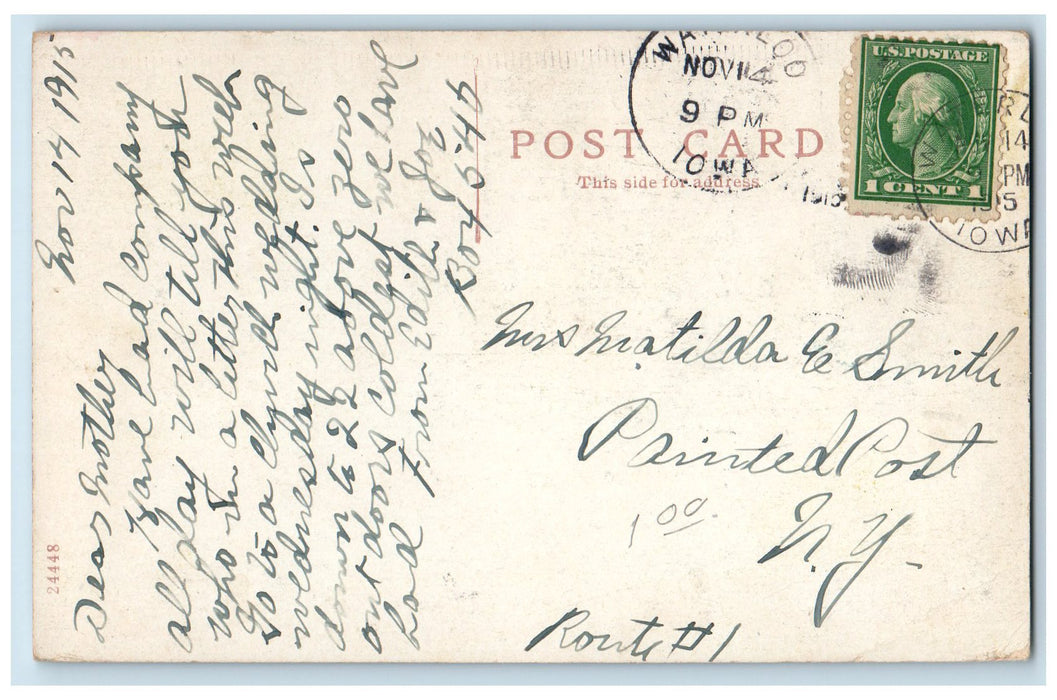 Nov 14 1915
Dear Mother
Have had company
all day will tell you
who in a letter this week
Go to a church wedding
wednesday night. Is
down to 22 above zero
out doors coldest we have
had
From Edith & Joe
Box 545
24448
POST CARD
This side for address
WATERLOO
NOV 14
9 PM
1915
IOWA
U.S. POSTAGE
1 CENT 1
14
PM
1915
IOWA
Mrs Matilda E Smith
Painted Post
N.Y.
1 00
Route #1